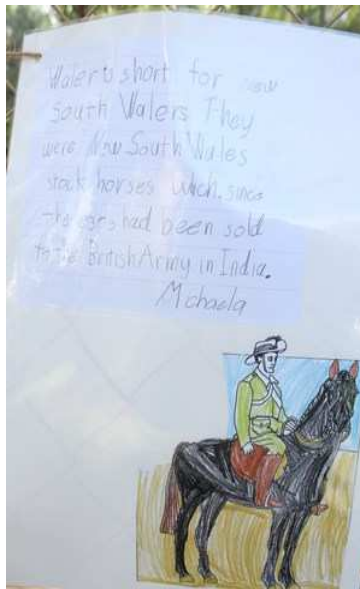 Waler is short for New
South Walers They
were New South Wales
stock horses which, since
had been sold
to the British Army in India.
Mchaela